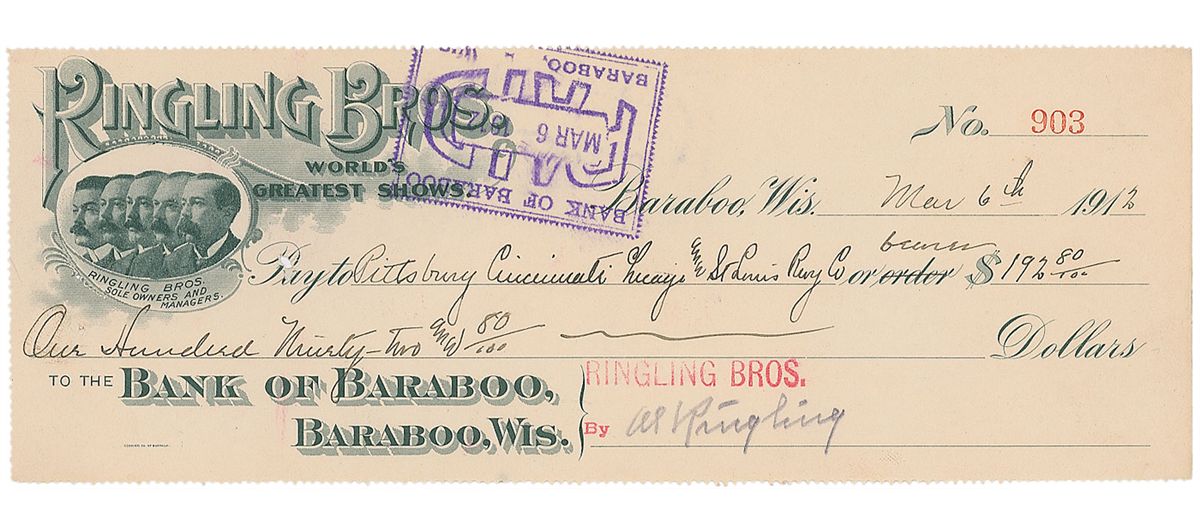 RINGLING BROS.
WORLD'S
GREATEST SHOWS.
RINGLING BROS.
SOLE OWNERS AND
MANAGERS.
BANK OF BARABOO
PAID
MAR 6
1912
BARABOO, WIS
No. 903
Baraboo, Wis. Mar 6th 1912
Pay to Pittsburg Cincinnati Chicago and St Louis Rwy Co or order bearer $192 80/100
One Hundred Ninety-two and 80/100 Dollars
TO THE BANK OF BARABOO,
BARABOO, WIS.
RINGLING BROS.
By Al Ringling